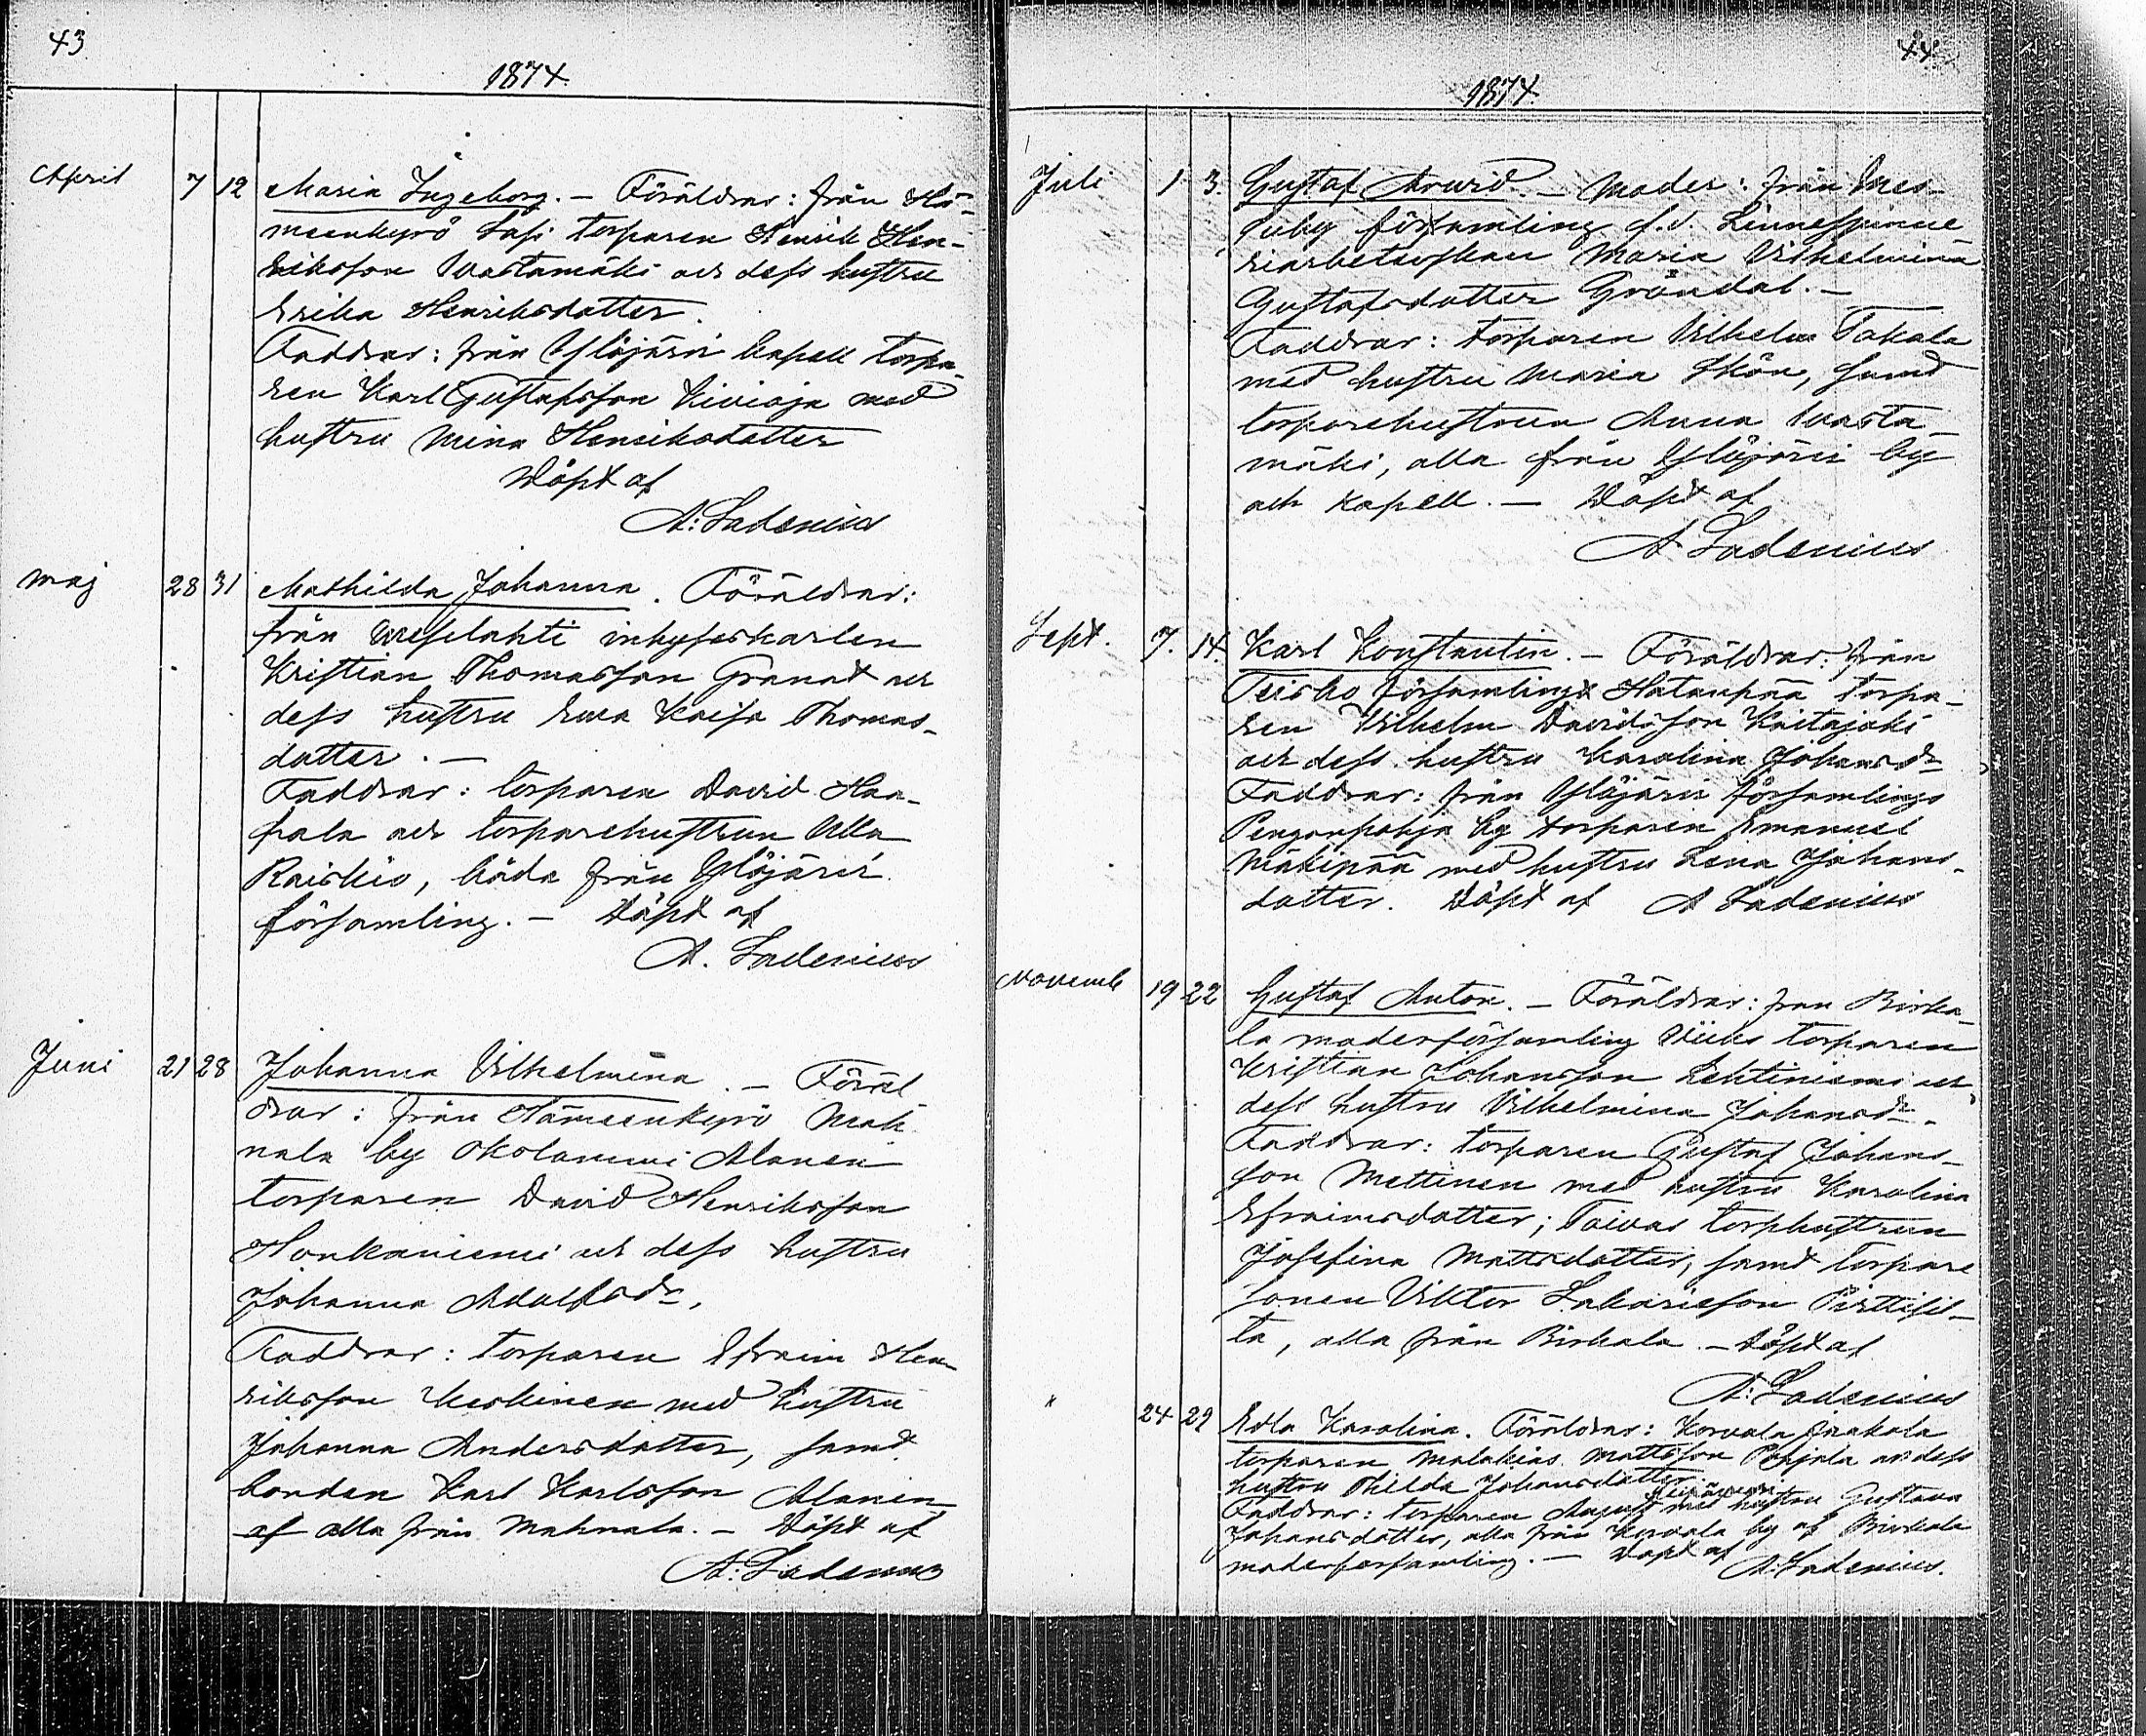 43
1874.
April 7 12 Maria Ingeborg. – Föräldrar: från Hä-
meenkyrö Sasi torparen Henrik Hen-
riksson Wastamäki och dess hustru
Erika Henriksdotter.
Faddrar: från Ylöjärvi kapell torpa-
ren Karl Gustafsson Kivioja med
hustru Mina Henriksdotter
Döpt af
A: Ladenius
Maj 28 31 Mathilda Johanna. Föräldrar:
från inhyseskarlen
Kristian Thomasson Granat och
dess hustru Ewa Kaisa Thomas-
dotter. –
Faddrar: torparen David Haa-
pala och torparehustrun Ulla
Raiskio, båda från Ylöjärvi
församling. – Döpt af
A. Ladenius
Juni 21 28 Johanna Vilhelmina. – Föräl
drar: från Hämeenkyrö Mah
nala by Alanen
torparen David Henriksson
Honkaniemi och dess hustru
Johanna Adolfsdr.
Faddrar: torparen Efraim Hen
riksson Keskinen med hustru
Johanna Andersdotter, samt
bonden Karl Karlsson Alanen
af alla från Mahnala. – Döpt af
A: Ladenius
44
1874.
Juli 1 3. Gustaf Arvid. – Moder: från Mes-
suby församling f.d. Linnespinne
riarbeterskan Maria Vilhelmina
Gustafsdotter Gröndal. –
Faddrar: torparen Vilhelm Takala
med hustru Maria Skön, samt
torparehustrun Anna Wasta-
mäki, alla från Ylöjärvi by
och kapell. – Döpt af
A Ladenius
Sept. 7. 14. Karl Konstantin. – Föräldrar: från
Teisko församling Hatanpää torpa-
ren Vilhelm Davidsson Kaitajoki
och dess hustru Karolina Johansdr
Faddrar: från Ylöjärvi församlings
Pengonpohja by torparen Emanuel
Mäkipää med hustru Lena Johans-
dotter. Döpt af A Ladenius
Novemb 19 22 Gustaf Anton. – Föräldrar: från Birka-
la moderförsamling torparen
Kristian Johansson Lehtiniemi och
dess hustru Vilhelmina Johansdr.
Faddrar: torparen Gustaf Johans-
son Mettinen med hustru Karolina
Efraimsdotter; Taivas torphustrun
Josefina Mattsdotter, samt torpare
sonen Viktor Sakariesson Pirttisil-
ta, alla från Birkala. – Döpt af
A: Ladenius
" 24 29 Edla Karolina. Föräldrar: Korvola Jaakola
torparen Malakias Mattsson Pohjola och dess
hustru Thilda Johansdotter
Faddrar: torparen August med hustru Gustava
Johansdotter, alla från Korvola by af Birkala
moderförsamling. – Döpt af A: Ladenius.